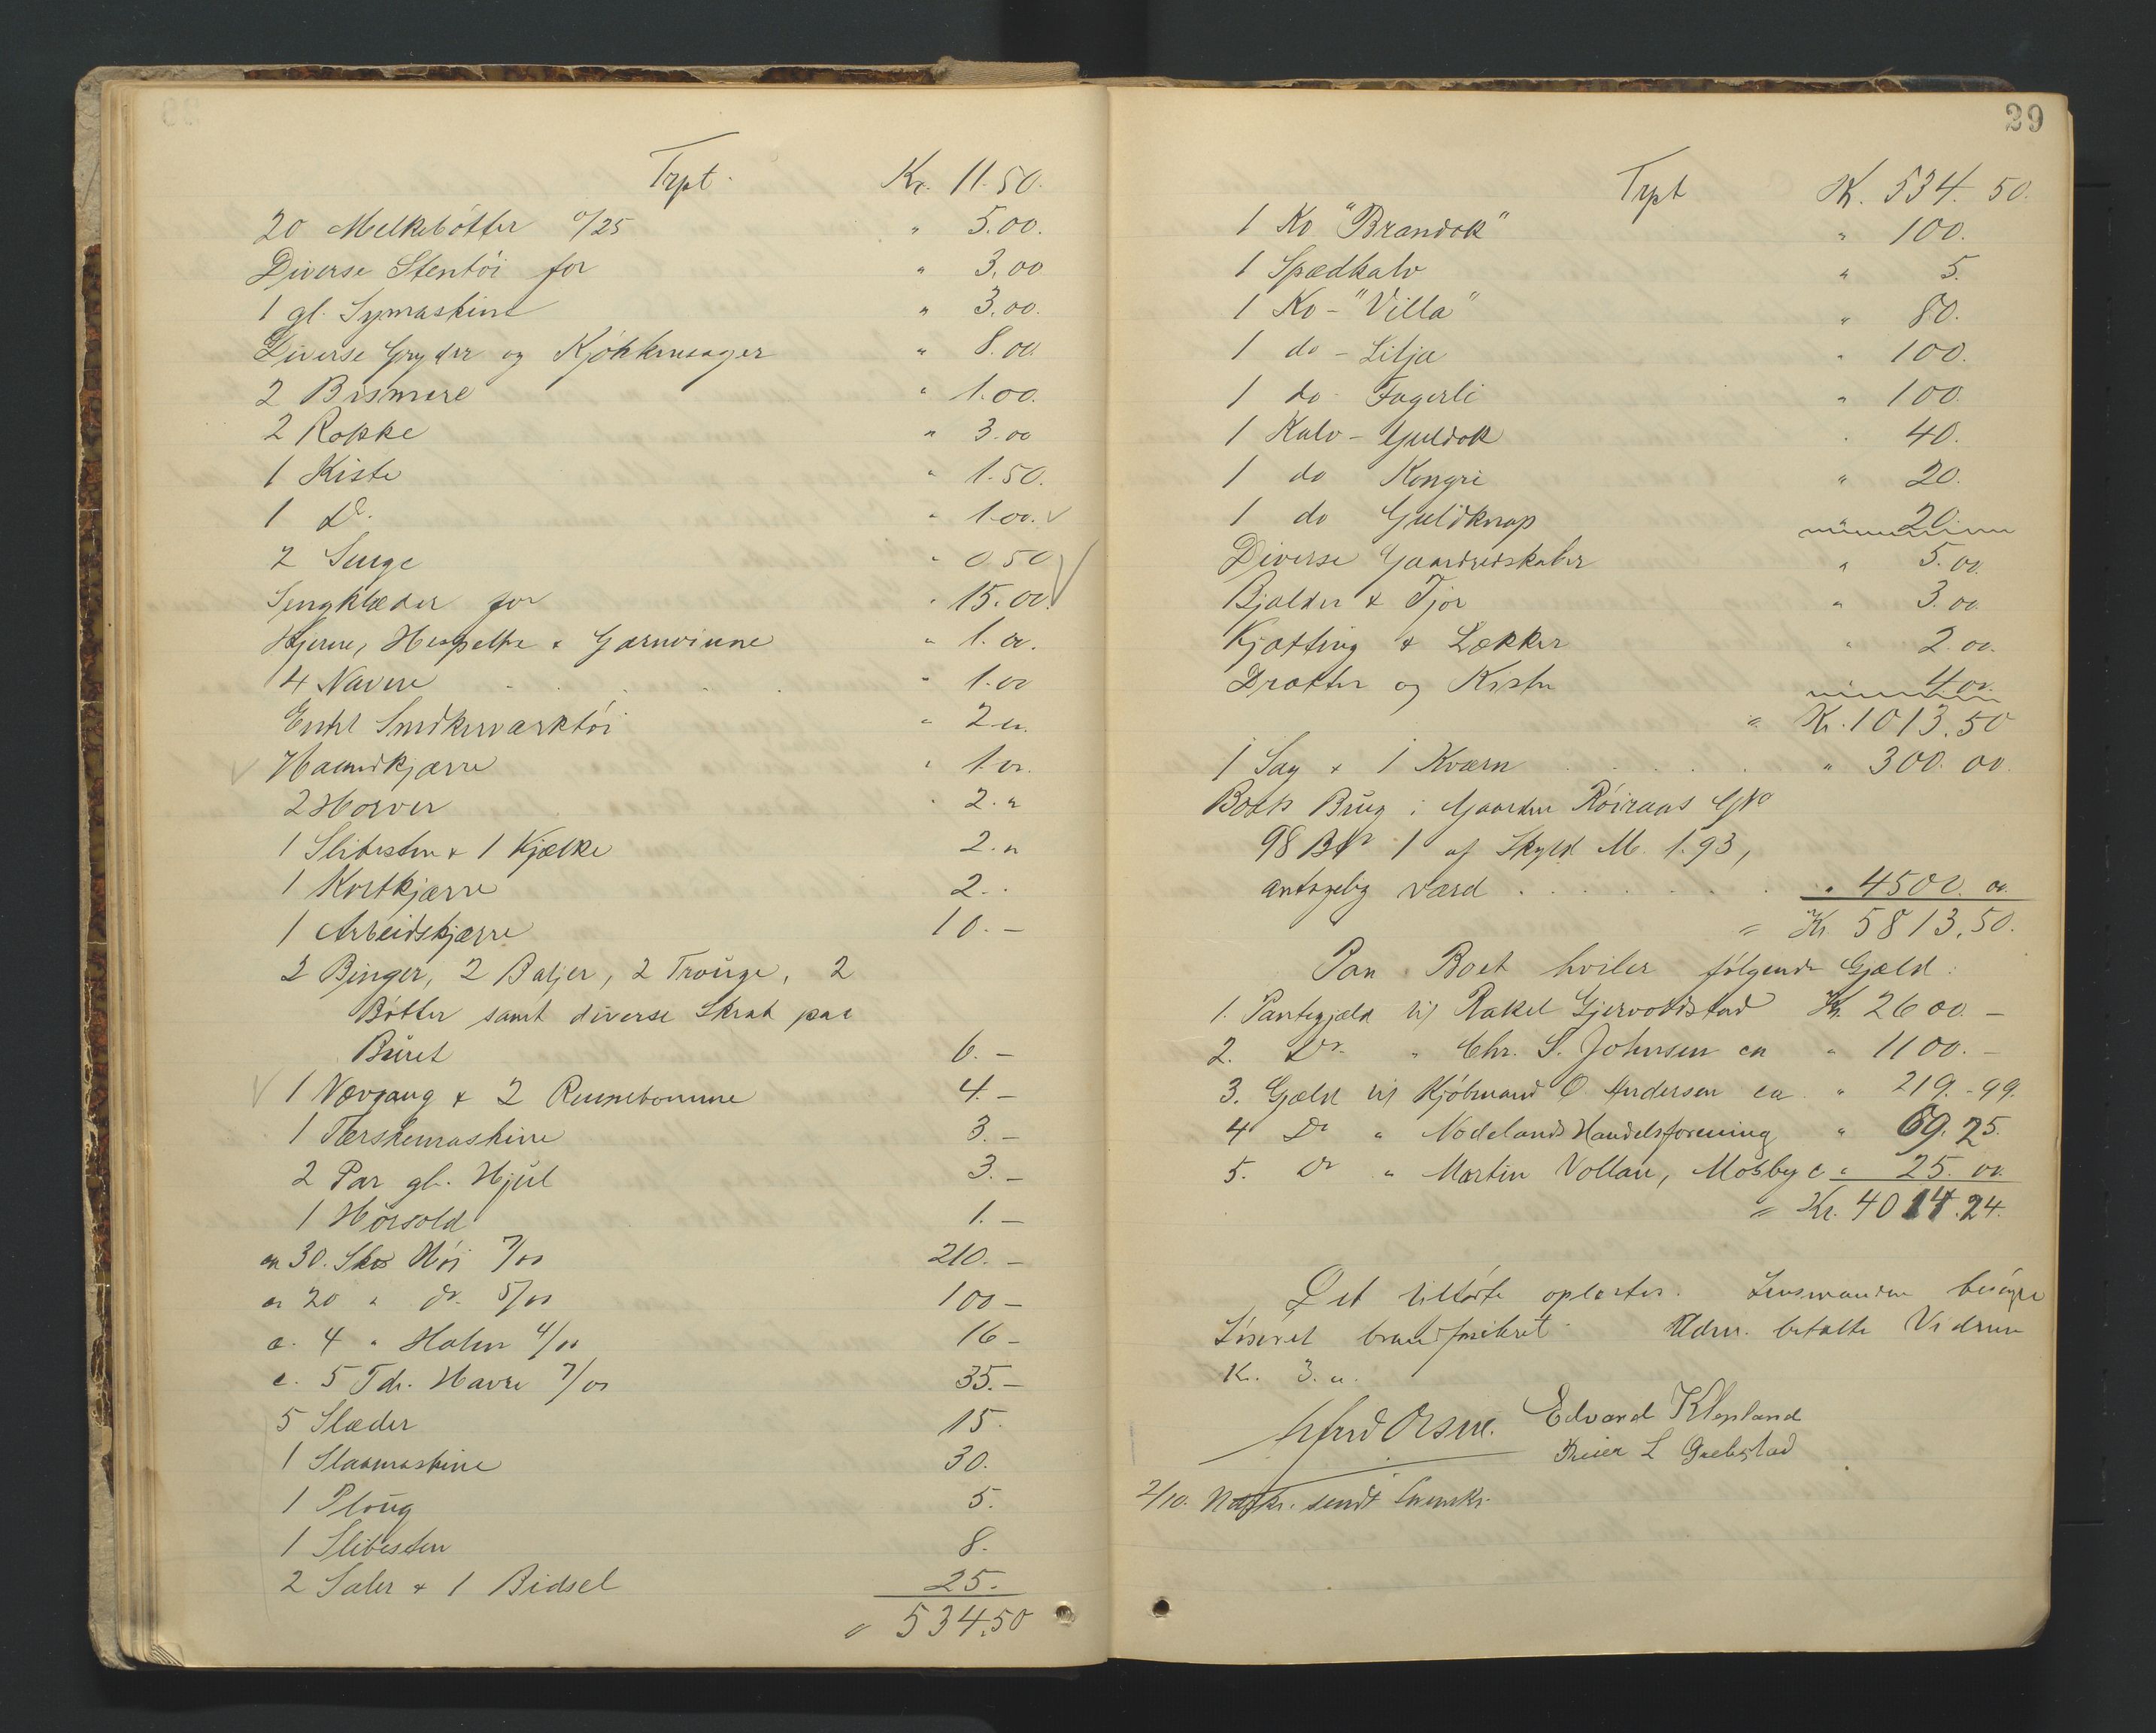 Trpt. Kr. 11.50.
20 Melkebøtter a/25 " 5.00.
Diverse Stentøi for " 3.00
1 gl. Symaskine " 3.00.
Diverse Gryder og Kjøkkensager " 8.00.
2 Bismere " 1.00.
2 Rokke " 3.00
1 Kiste " 1.50.
1 Do. " 1.00. ✓
2 Senge " 0 50
Sengklæder for " 15.00. ✓
Kjerne, Hespeltre & Garnvinne " 1.00.
4 Navere . . . . . " 1.00
Enkl Snedkerværktøi " 2.00.
✓ Haandkjærre " 1.00.
2 Horver " 2. "
1 Slibesten & 1 Kjælke 2. "
1 Kostkjærre 2. .
1 Arbeidskjærre 10. –
2 Binger, 2 Baljer, 2 Trouge, 2
Bøtter samt diverse Skrab paa
Buret 6. –
✓ 1 Vævgang & 2 Rennebomme 4. –
1 Tærskemaskine 3. –
2 Par gl. Hjul 3. –
1 Hørsold 1. –
ca 30. Skp Høi 7/00 210. –
ca 20 " do. 5/00 100 –
c. 4 " Halm 4/00 16 –
c. 5 Tdr. Havre 7/00 35. –
5 Slæder 15.
1 Slaamaskine 30.
1 Ploug 5.
1 Slibesten 8.
2 Saler & 1 Bidsel 25.
534.50
29
Trpt K. 534. 50.
1 Ko "Brandok" " 100.
1 Spædkalv " 5.
1 Ko - "Villa" " 80.
1 do - Lilja " 100.
1 do - Fagerli " 100.
1 Kalv - Guldok . 40.
1 do Kongri " 20.
1 do Guldknap 20
Diverse Gaardredskaber " 5.00.
Bjælder & Tjor " 3.00.
Kjætting & Lækker " 2.00.
Drætter og Kister 4.00.
= Kr. 1013.50
1 Sag & 1 Kværn . . . . . " 300.00.
Boets Brug i Gaarden Røiraas GNo
98 BNo 1 af Skyld M. 1.93,
antagelig værd . . . . . . . " 4500.00.
= Kr 5813.50.
Paa Boet hviler følgende Gjæld:
1. Pantegjæld til Rakel Gjervoldstad Kr. 2600. –
2. Do. " Chr. S. Johnsen ca " 1100. –
3. Gjæld til Kjøbmand O. Andersen ca. " 219.-99.
4 Do " Nodelands Handelsforening " 69.25.
5. Do " Martin Vollan, Mosby c " 25.00.
= Kr. 4014.24.
Det tilførte oplæstes. Lensmanden besørger
Løsøret brandforsikret. betalte Vidnerne
Kr. 3. 00.
Alfred Olsen. Edvard Klepland
L Grebstad
2/10. sendt